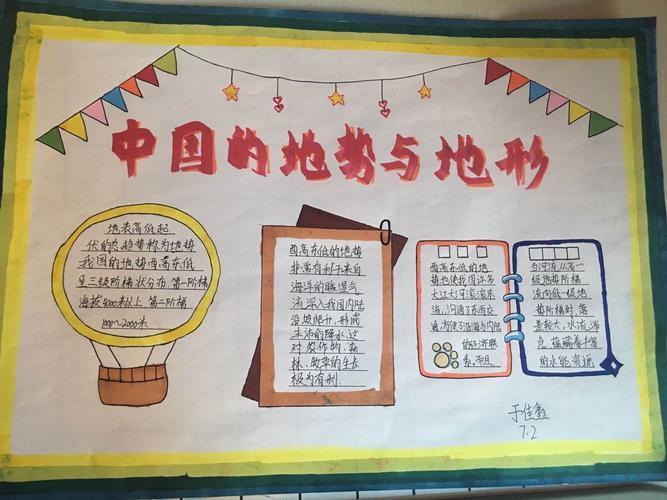 中国的地势与地形
地表高低起
伏的总趋势称为地势
我国的地势西高东低
呈三级阶梯状分布 第一阶梯
海拔4000米以上 第二阶梯
1000~2000米
西高东低的地势
非常有利于来自
海洋的暖湿气
流深入我国内陆
沿坡爬升,形成
生活的降水,这
对农作物、森
林、牧草的生长
极为有利.
西高东低的地
势也使我国许多
大江大河滚滚东
流,沟通了东西交
通,方便了沿海与内陆
的经济联
系。而且
当河流从高一
级地势阶梯
流向低一级地
势阶梯时,落
差较大,水流湍
急,蕴藏着丰富
的水能资源
于佳鑫
7.2